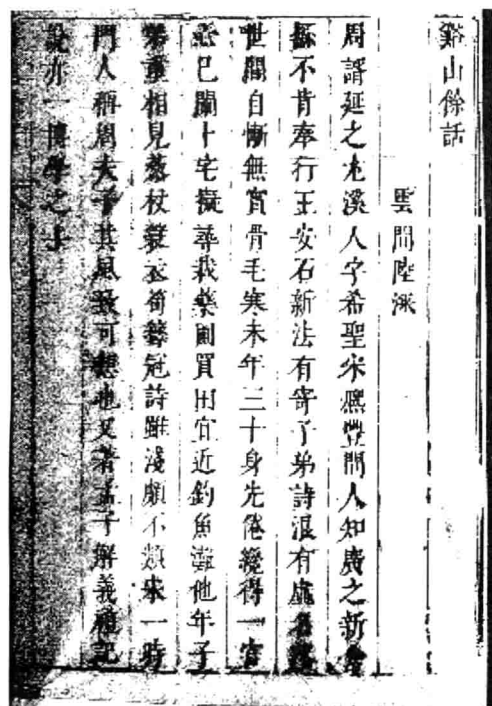 谿山餘話
雲間陸深
周諝延之尤溪人字希聖宋熙豐間人知廣之新會
縣不肯奉行王安石新法有寄子弟詩浪有虛名落
世間自慚無實骨毛寒未年三十身先倦纔得一官
已闌卜宅擬尋栽藥圃買田宜近釣魚灘他年子
重相見藜杖衣筍籜冠詩雖淺頗不類宋一時
門人稱周夫子其風致可想也又著孟子解義禮記
說亦一博學之士